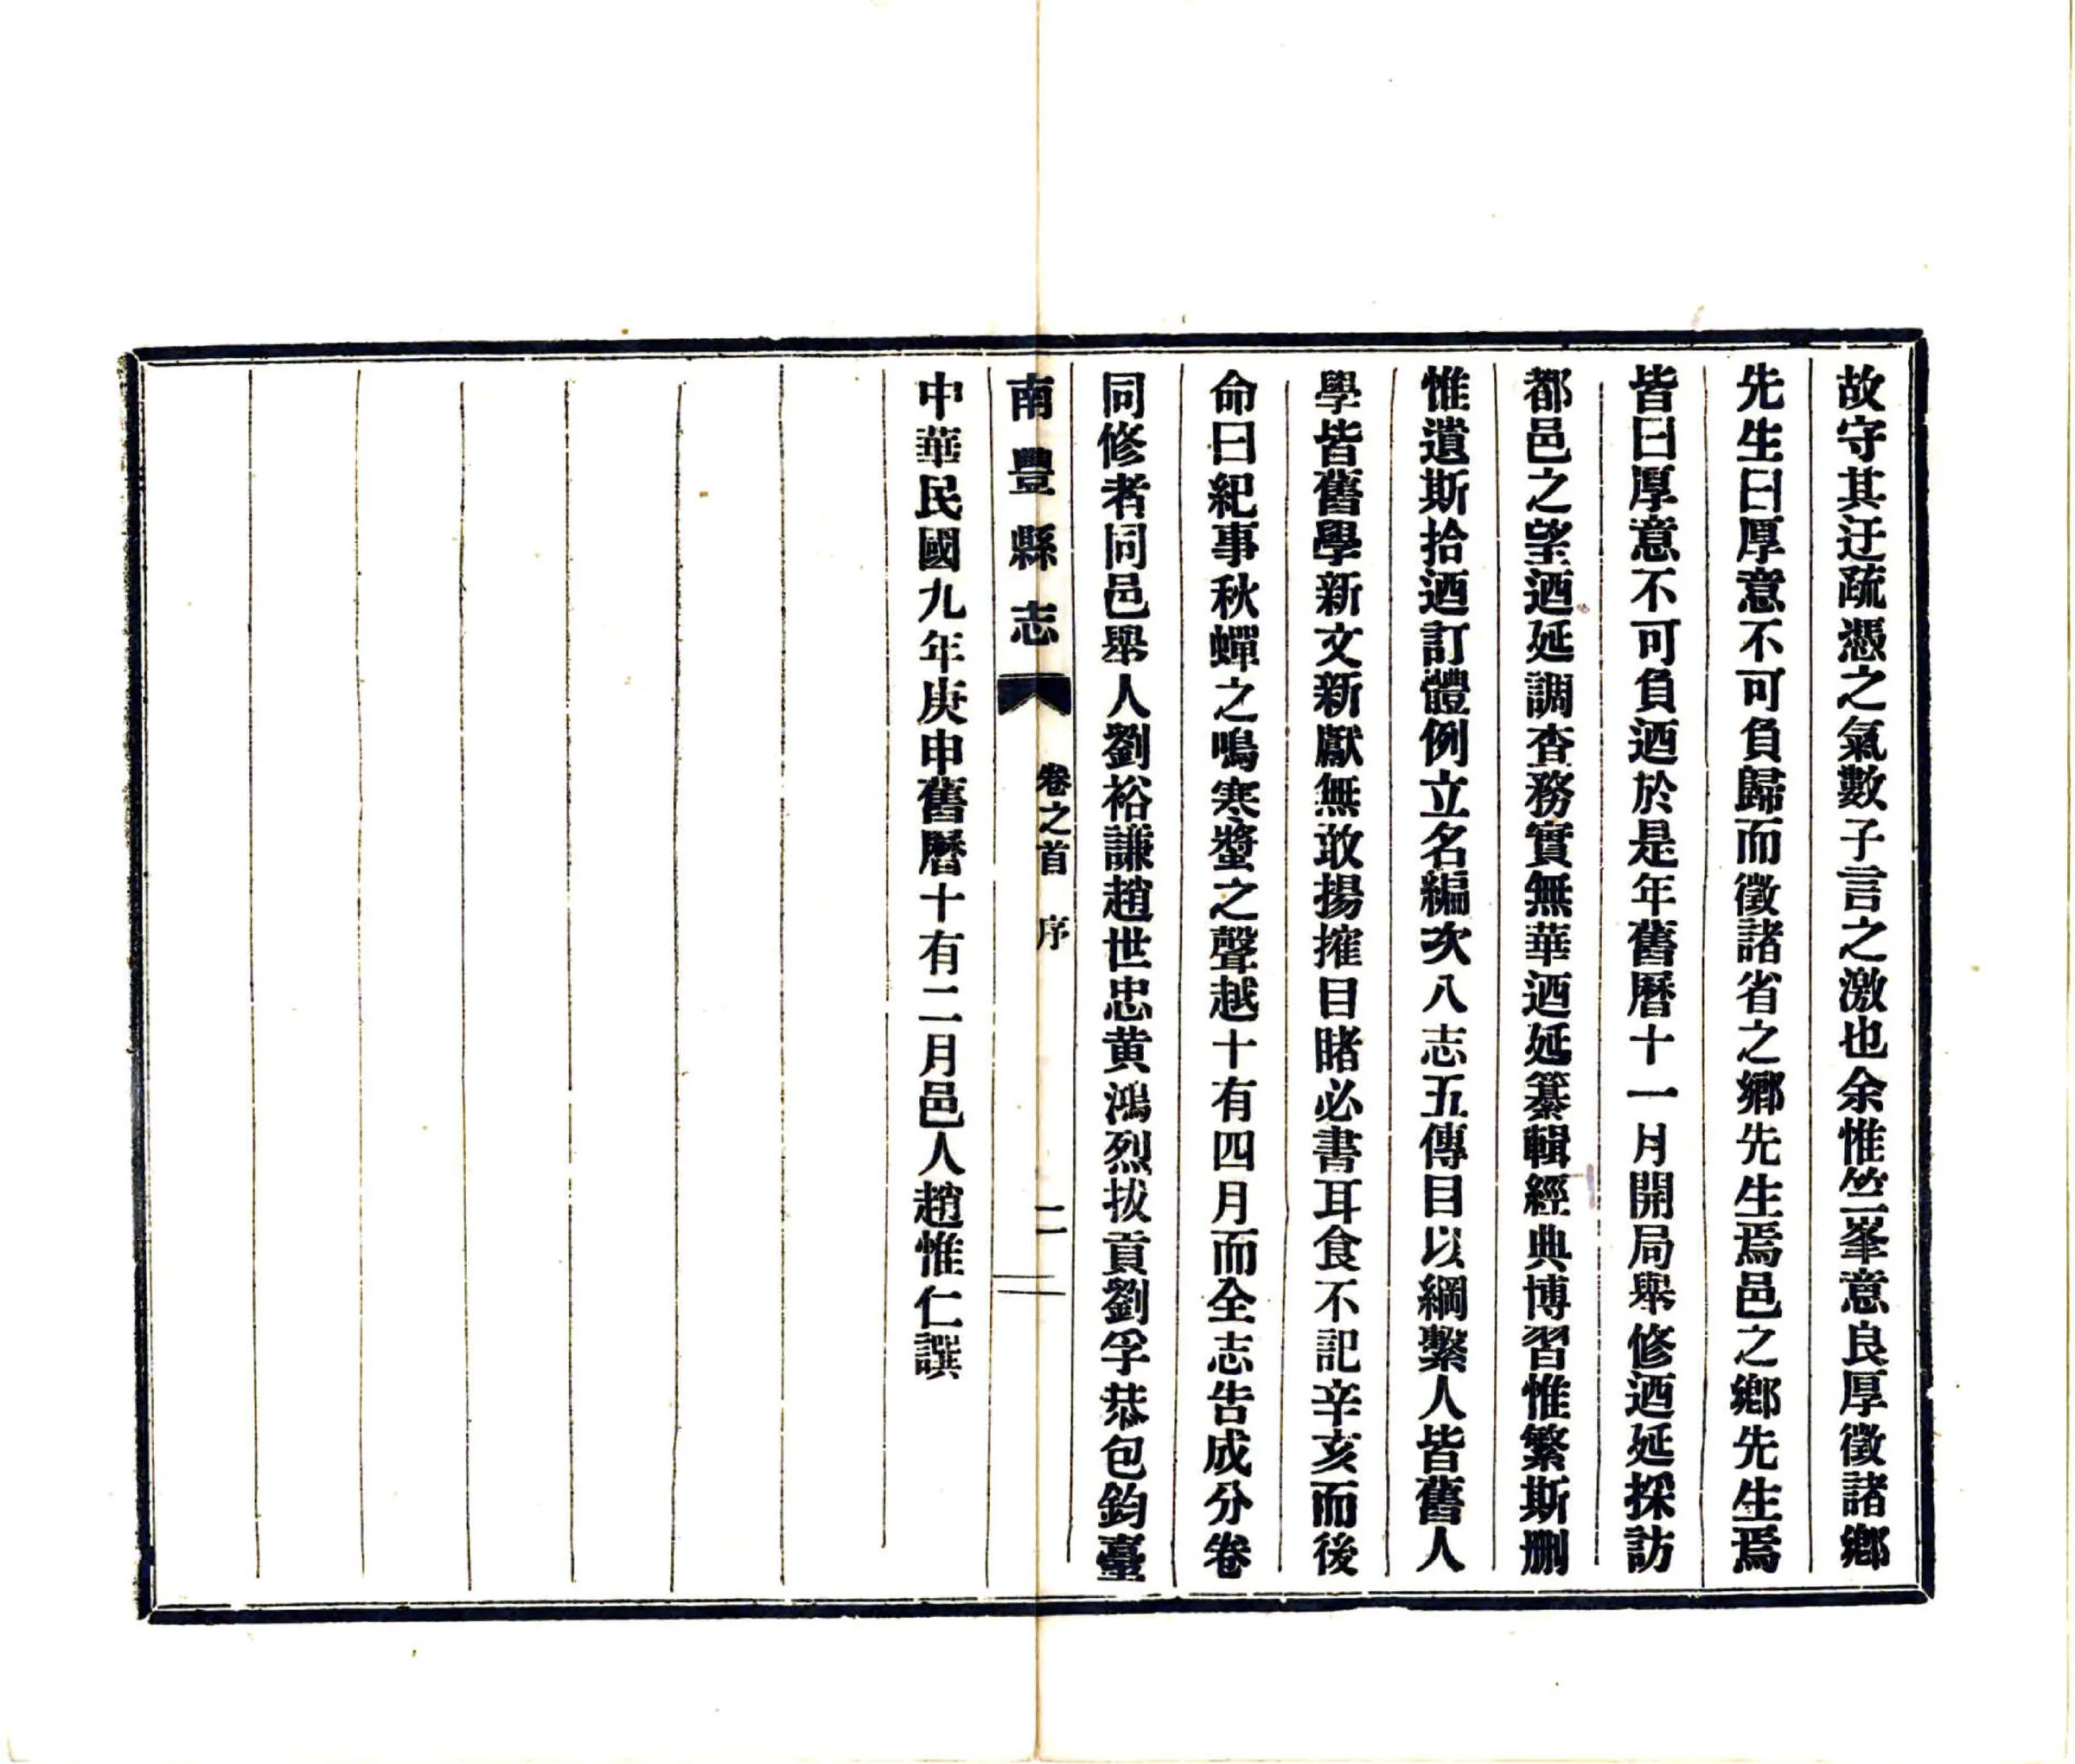 故守其迂疏憑之氣數子言之激也余惟竺峯意良厚徵諸鄉
先生曰厚意不可負歸而徵諸省之鄉先生焉邑之鄉先生焉
皆曰厚意不可負迺於是年舊曆十一月開局舉修迺延採訪
都邑之望迺延調查務實無華迺延纂輯經典博習惟繁斯删
惟遺斯拾迺訂體例立名編次八志五傳目以綱繫人皆舊人
學皆舊學新文新獻無敢揚搉目睹必書耳食不記辛亥而後
命曰紀事秋蟬之鳴寒螿之聲越十有四月而全志告成分卷
同修者同邑舉人劉裕謙趙世忠黄鴻烈拔貢劉孚恭包鈞臺
南豐縣志 卷之首 序 二
中華民國九年庚申舊曆十有二月邑人趙惟仁譔